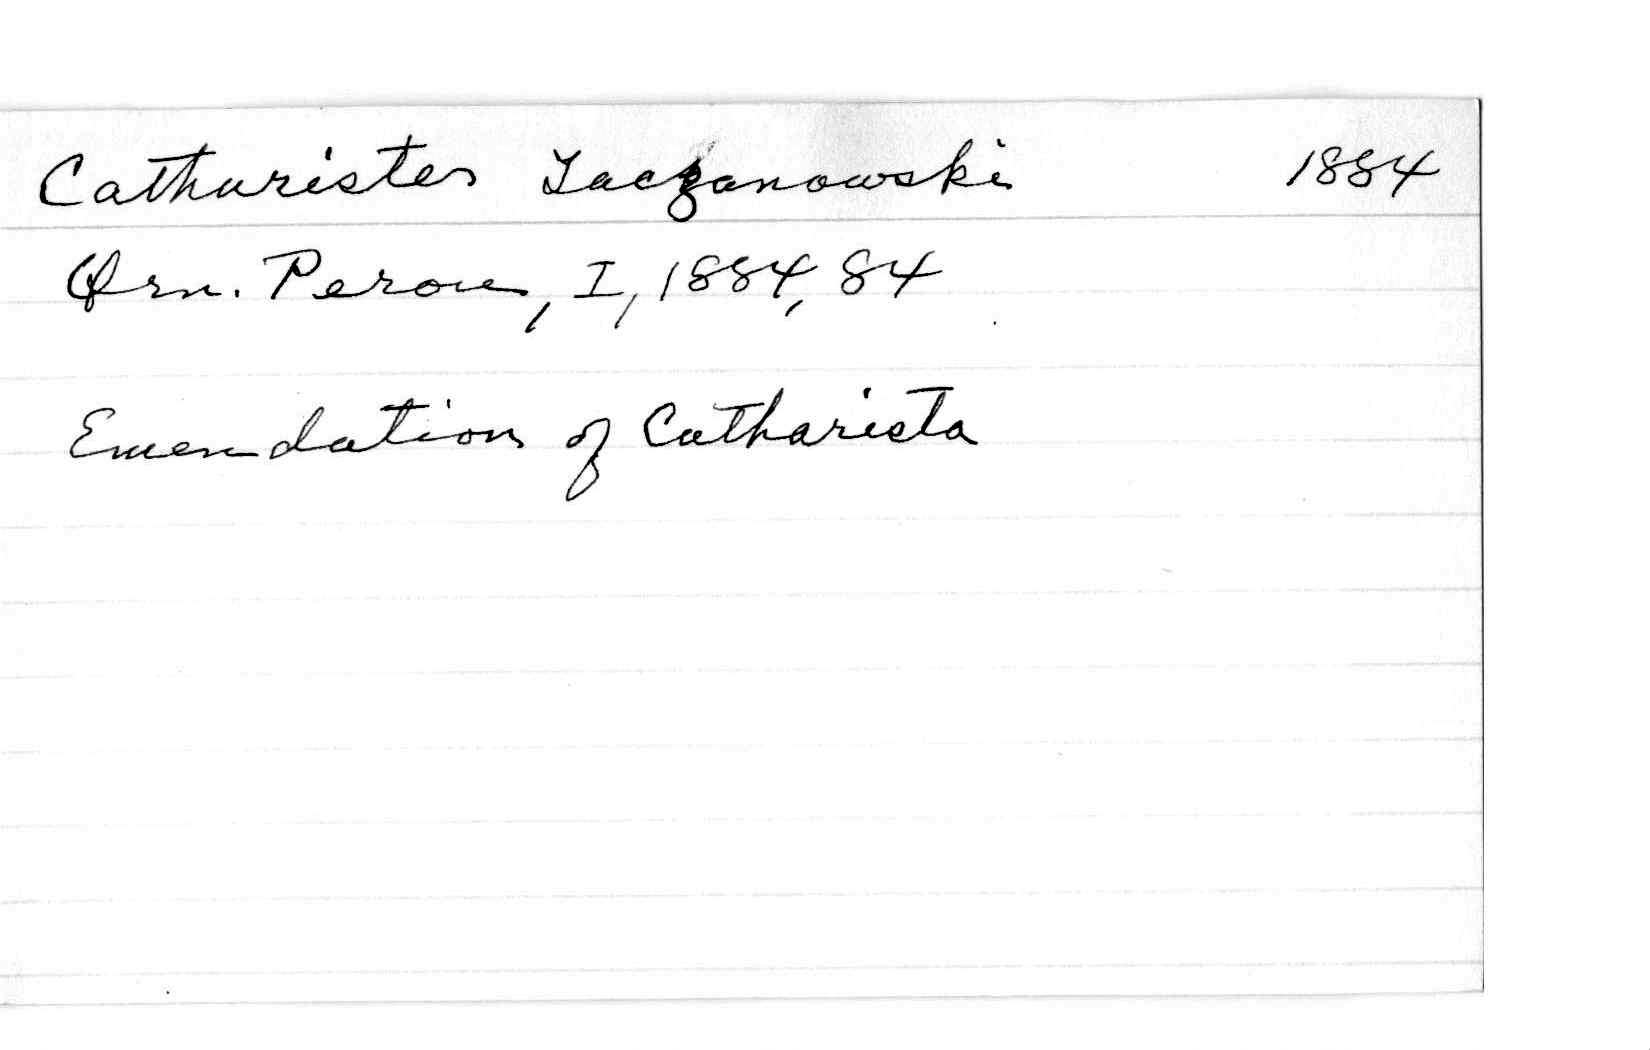 Catharistes Taczanowski 1884
Orn. Perou, I, 1884, 84
Emendation of Catharista